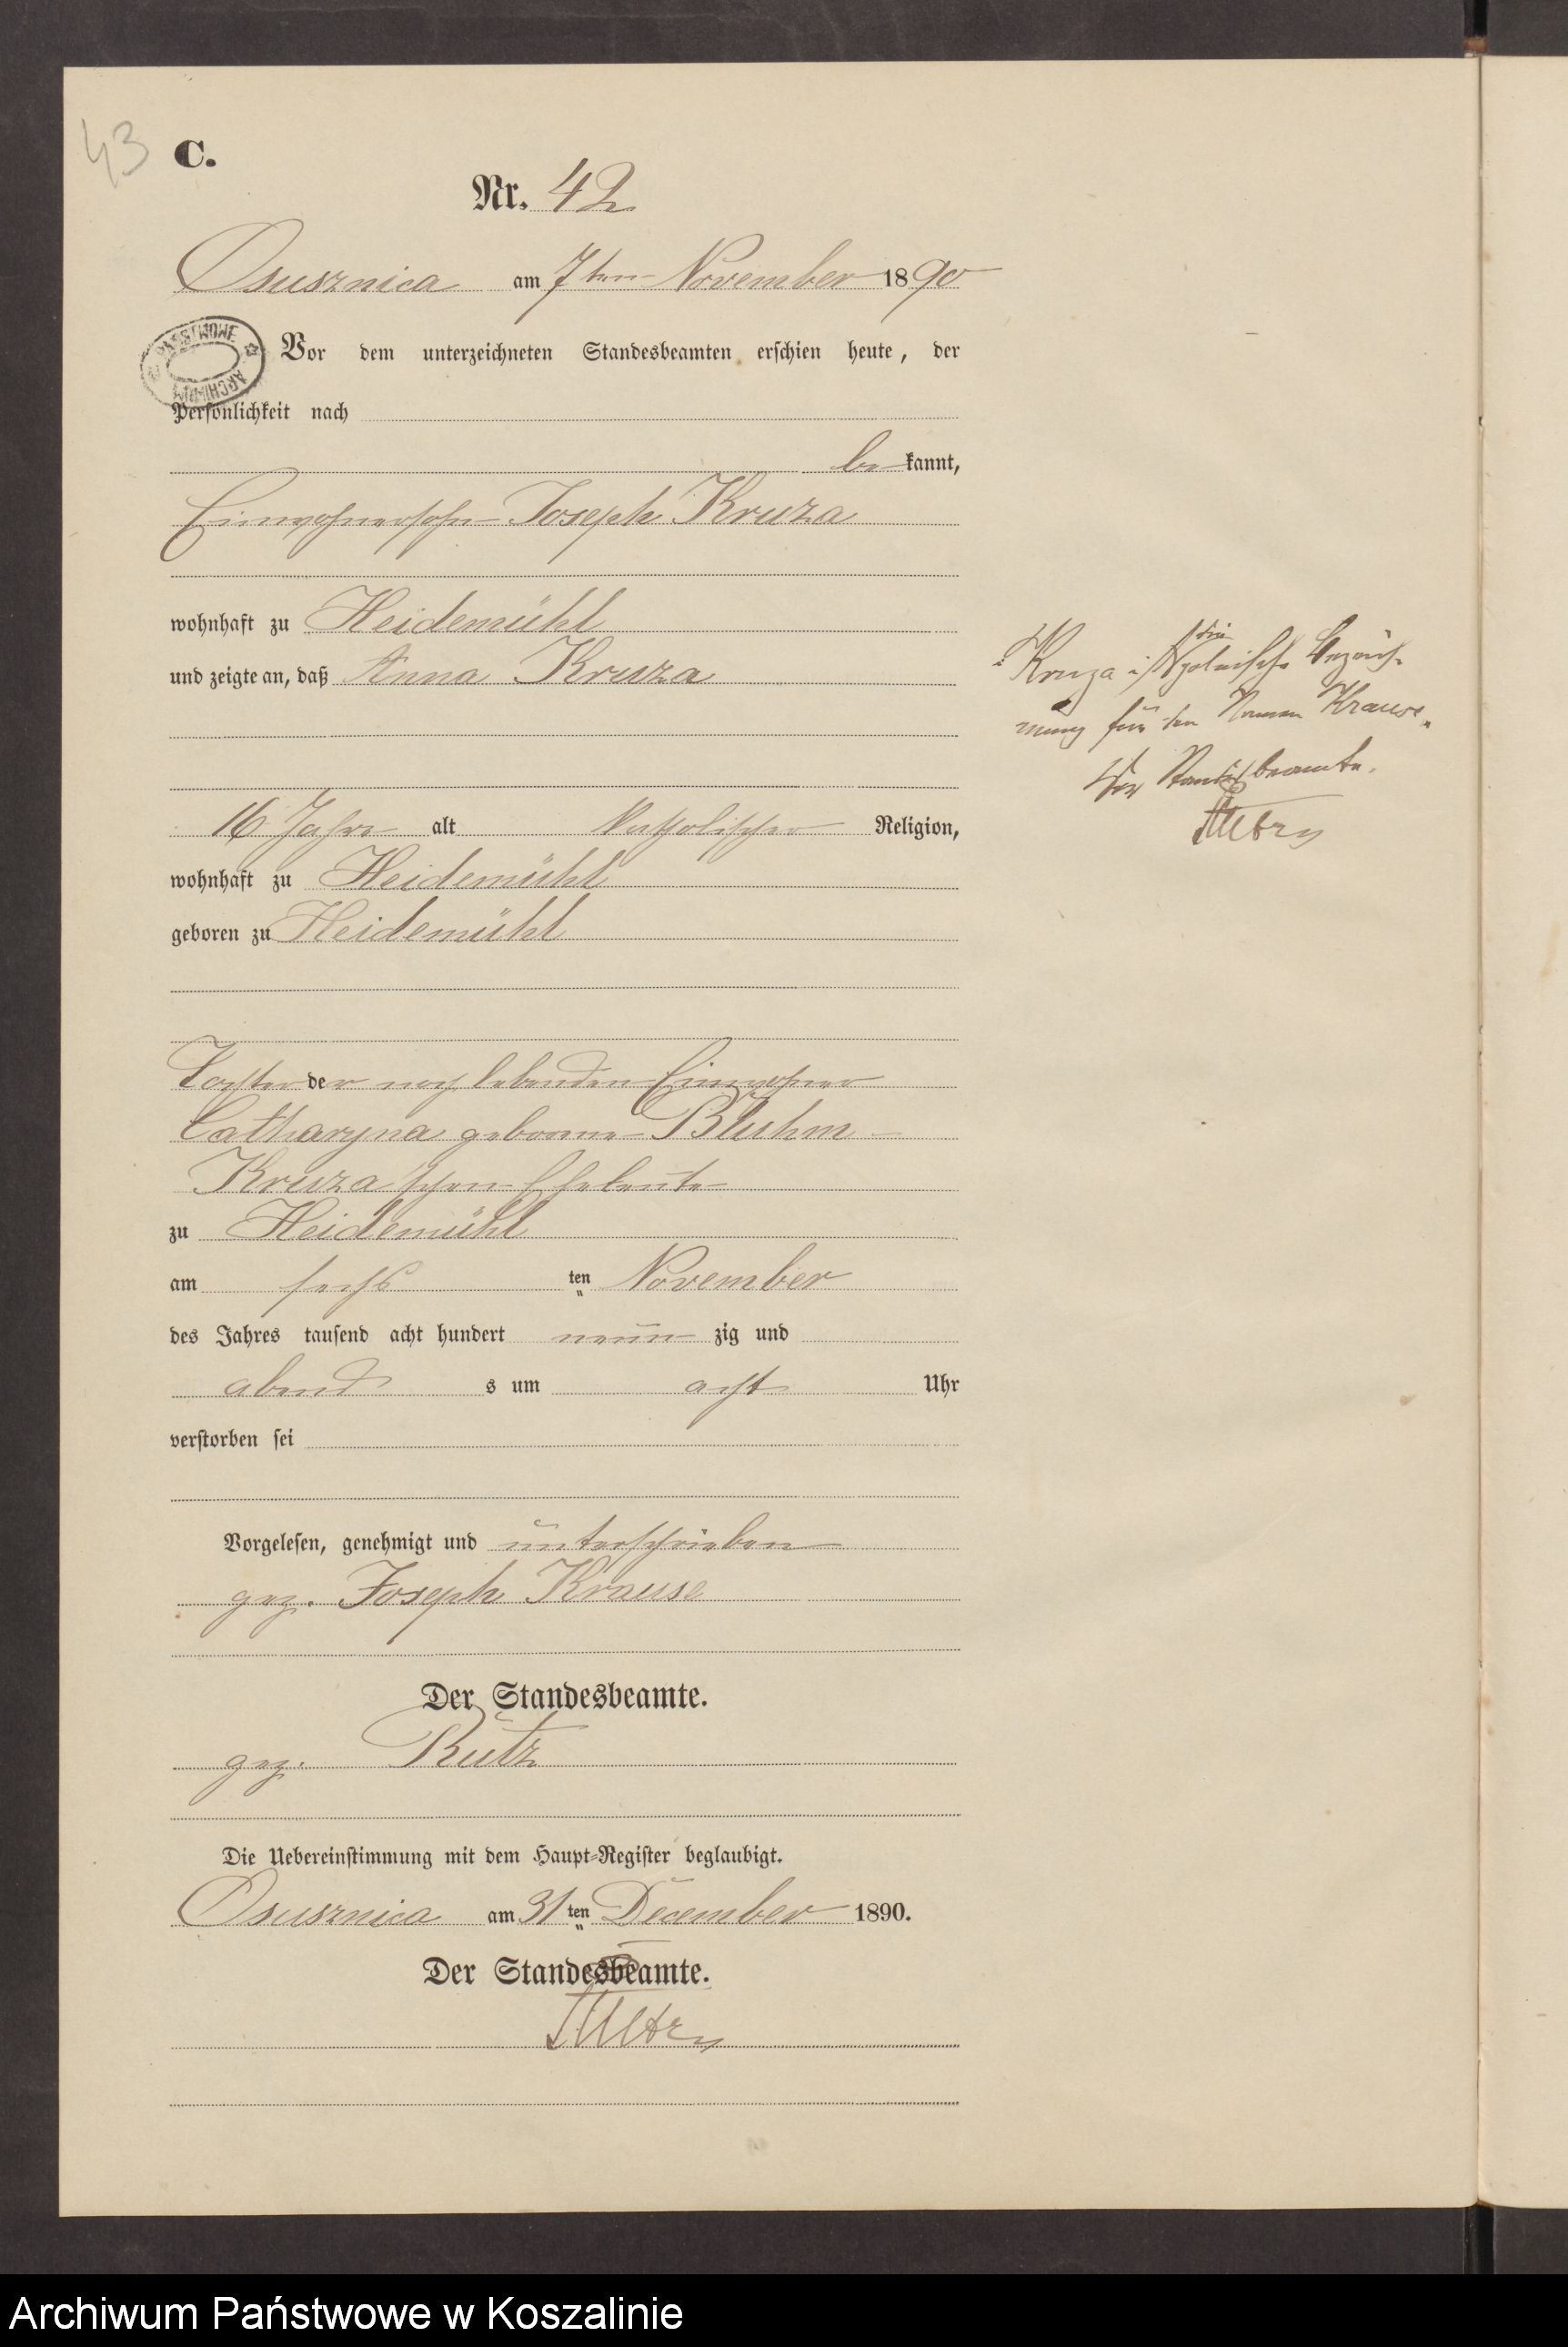 43
C.
Nr. 42
Osusznica am 7ten November 1890
PAŃSTWOWE ARCHIWUM
Vor dem unterzeichneten Standesbeamten erschien heute, der
Persönlichkeit nach
be kannt,
Einwohnersohn Joseph Kruza
wohnhaft zu Heidemühl
und zeigte an, daß Anna Kruza
16 Jahre alt katholischer Religion,
wohnhaft zu Heidemühl
geboren zu Heidemühl
Tochter der noch lebenden Einwohner
Catharyna geborene Bluhm
Kruza'schen Eheleute
zu Heidemühl
am sechs ten November
des Jahres tausend acht hundert neun zig und
abend s um acht Uhr
verstorben sei
Vorgelesen, genehmigt und unterschrieben
gez. Joseph Krause
Der Standesbeamte.
gez. Rutz
Die Uebereinstimmung mit dem Haupt-Register beglaubigt.
Osusznica am 31 ten December 1890.
Der Standesbeamte.
Kruza ist die polnische Bezeich-
nung für den Namen Krause.
Der Standesbeamte.
Archiwum Państwowe w Koszalinie